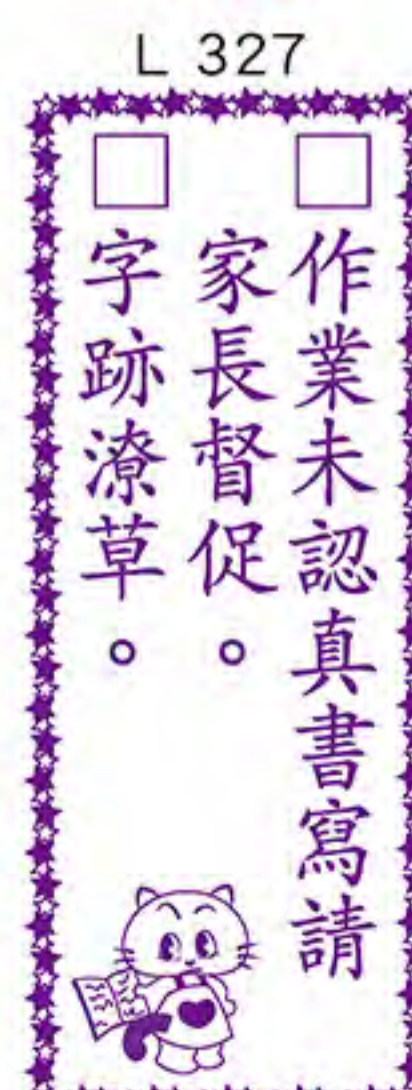 L 327
□作業未認真書寫請
家長督促。
□字跡潦草。